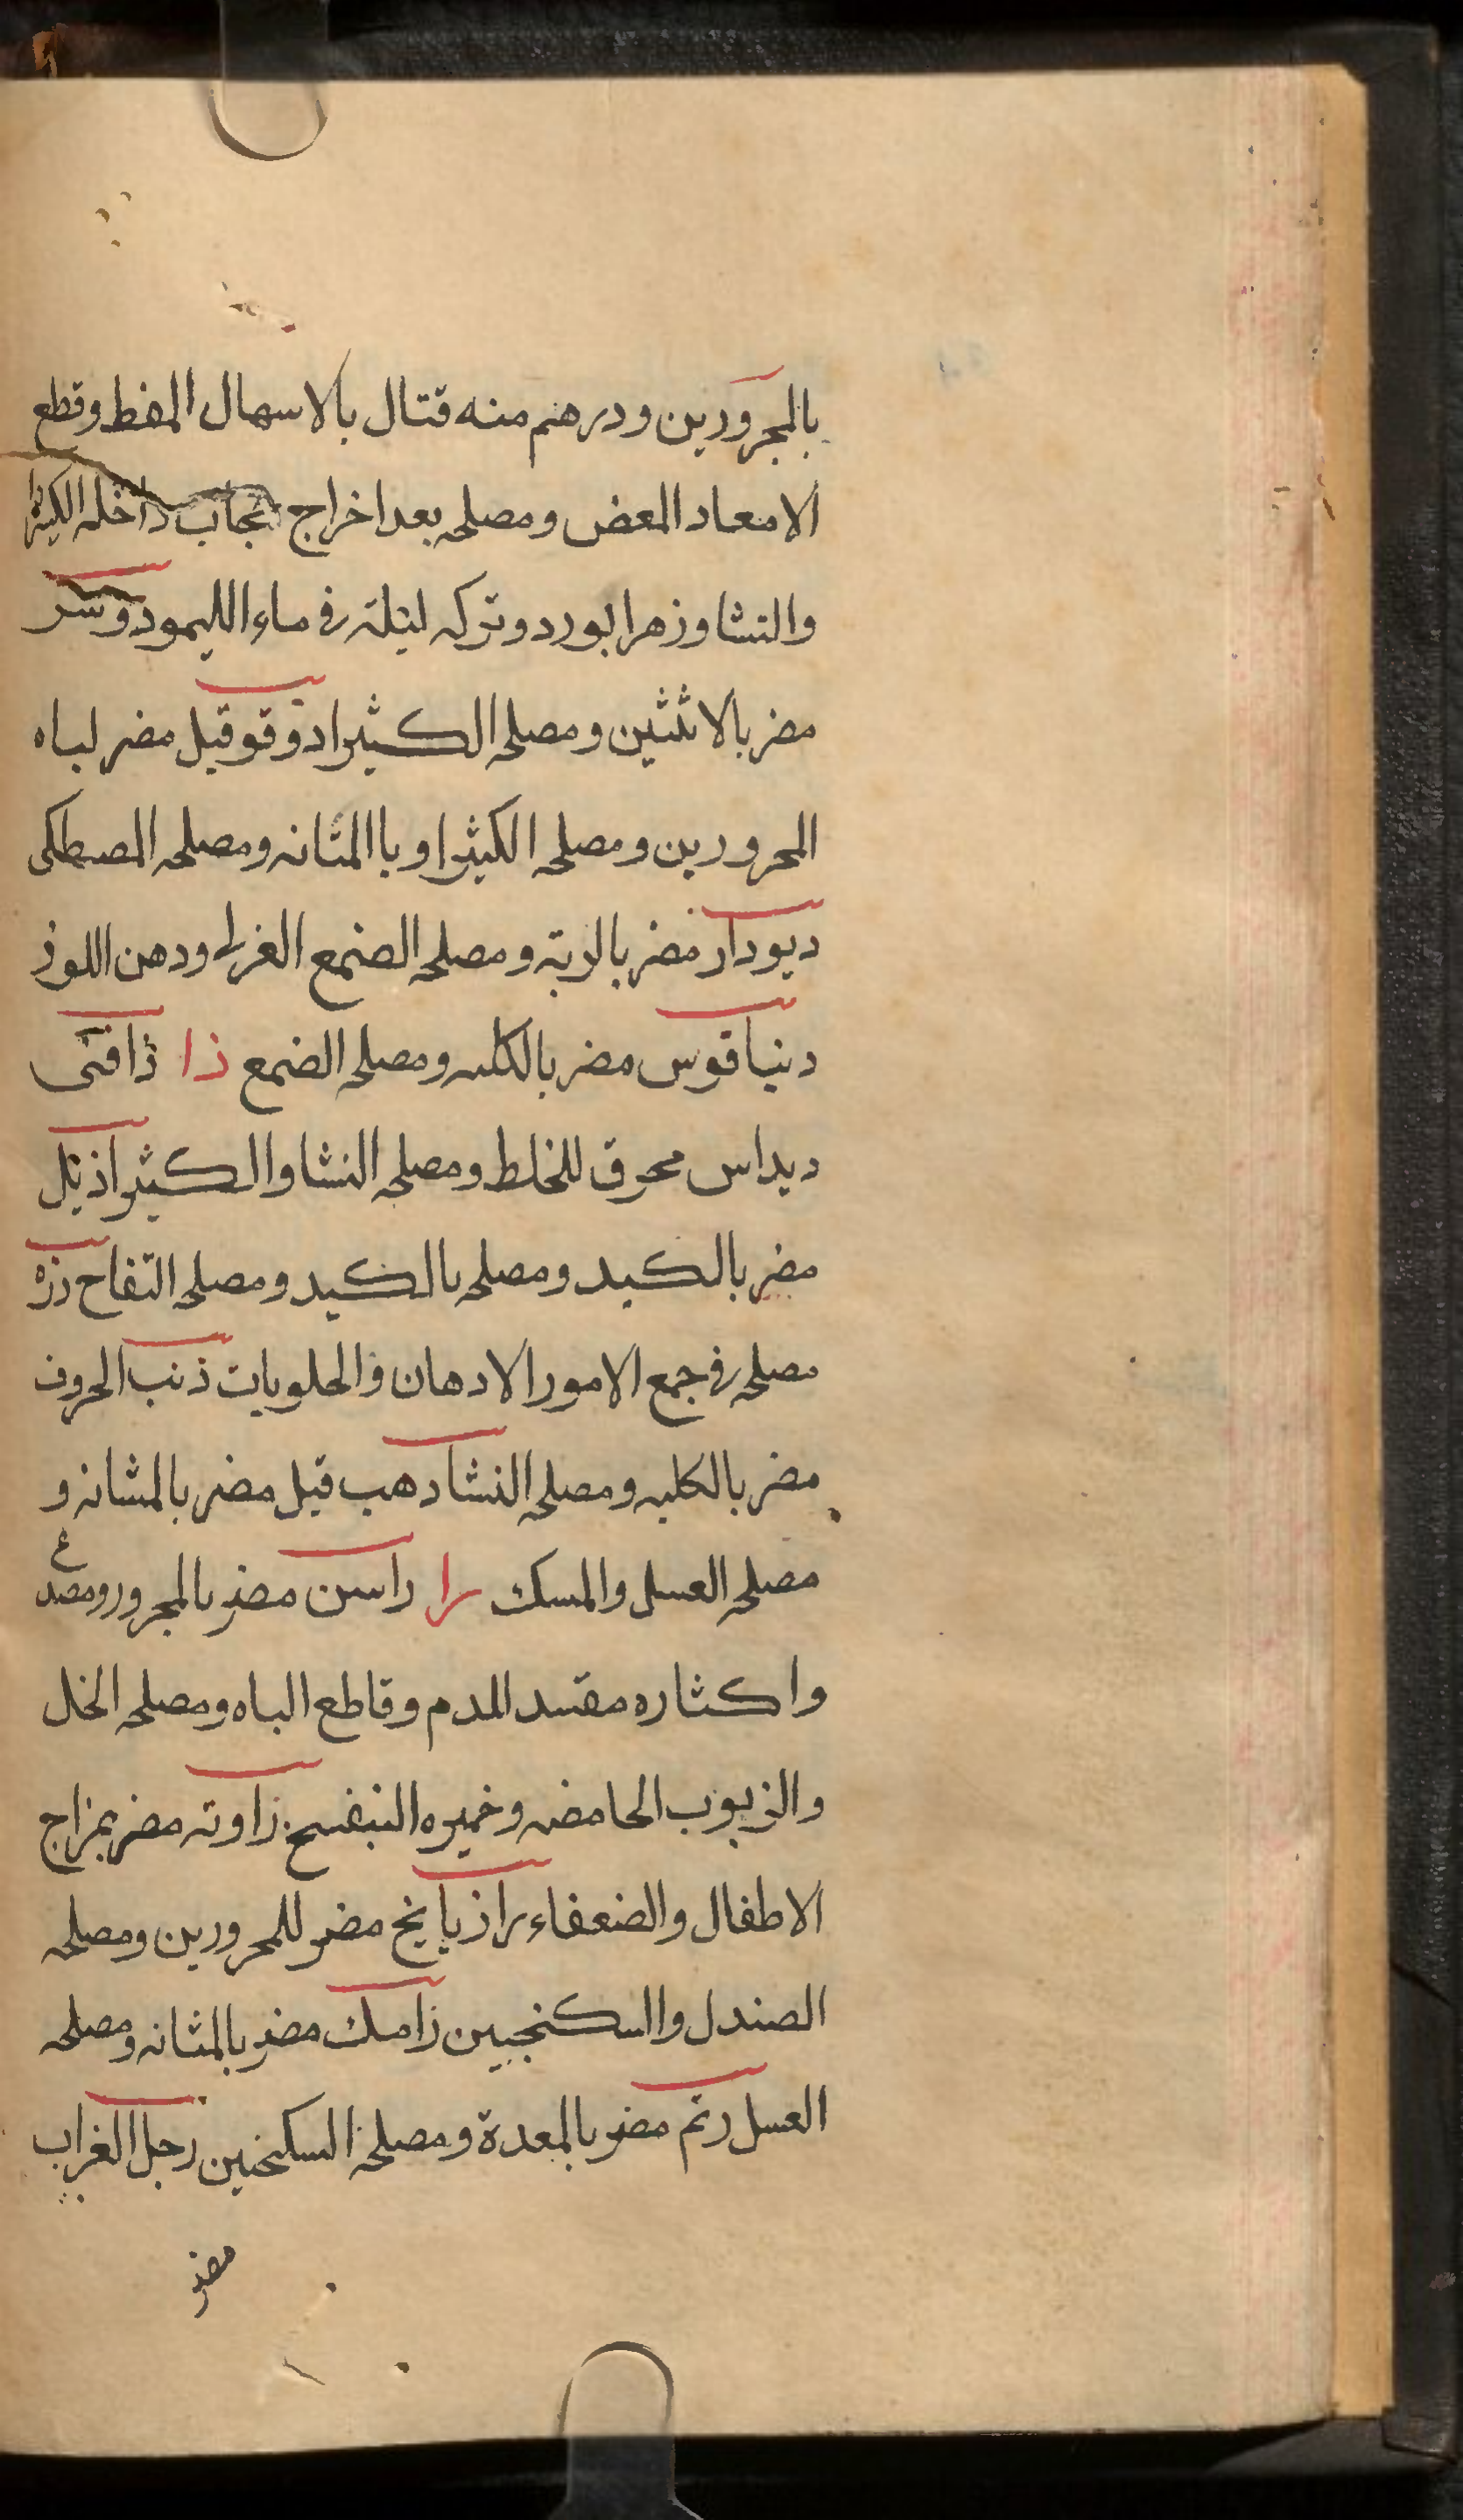 بالمجرورين ودرهم منه قتال بالاسهال المفط وقطع
الامعاد المعض ومصلحه بعد اخراج حجاب داخله الكيثرا
والنشا وزهرا بورد وتركه ليلة في ماء الليمو دوسر
مضر بالانثثين ومصلحه الكثيرا دوقو قيل مضر لباه
المحرورين ومصلحه الكيثرا وباالمثانه ومصلحه المصطكى
ديودار مضر بالربة ومصلحه الصنمع الغرا ودهن اللوز
دنياقوس مضر بالكليه ومصلحه الضمع ذا ذافنى
ديداس محرق للخلط ومصلحه النشا والكثيرا ذيل
مضر بالكبد ومصلحه بالكبد ومصلحه التفاح رزه
مصلحه في جمع الامور الادهان والحلويات ذنب الحروف
مضر بالكليه ومصلحه النشا دهب قيل مضر بالمشانه و
مصلحه العسل والمسك را راسن مضر بالمجرور ومصدع
واكثاره مفسد للدم وقاطع الباه ومصلحه الخل
والزبوب الحامضه وخميره النبفسج زاوته مضر بمزاج
الاطفال والضعفاء رازيانج مضر للمحرورين ومصلحه
الصندل والسكنجبين زامك مضر بالمثانه ومصلحه
العسل رتم مضر بالمعدة ومصلحه السكنجين رجل الغراب
مضر